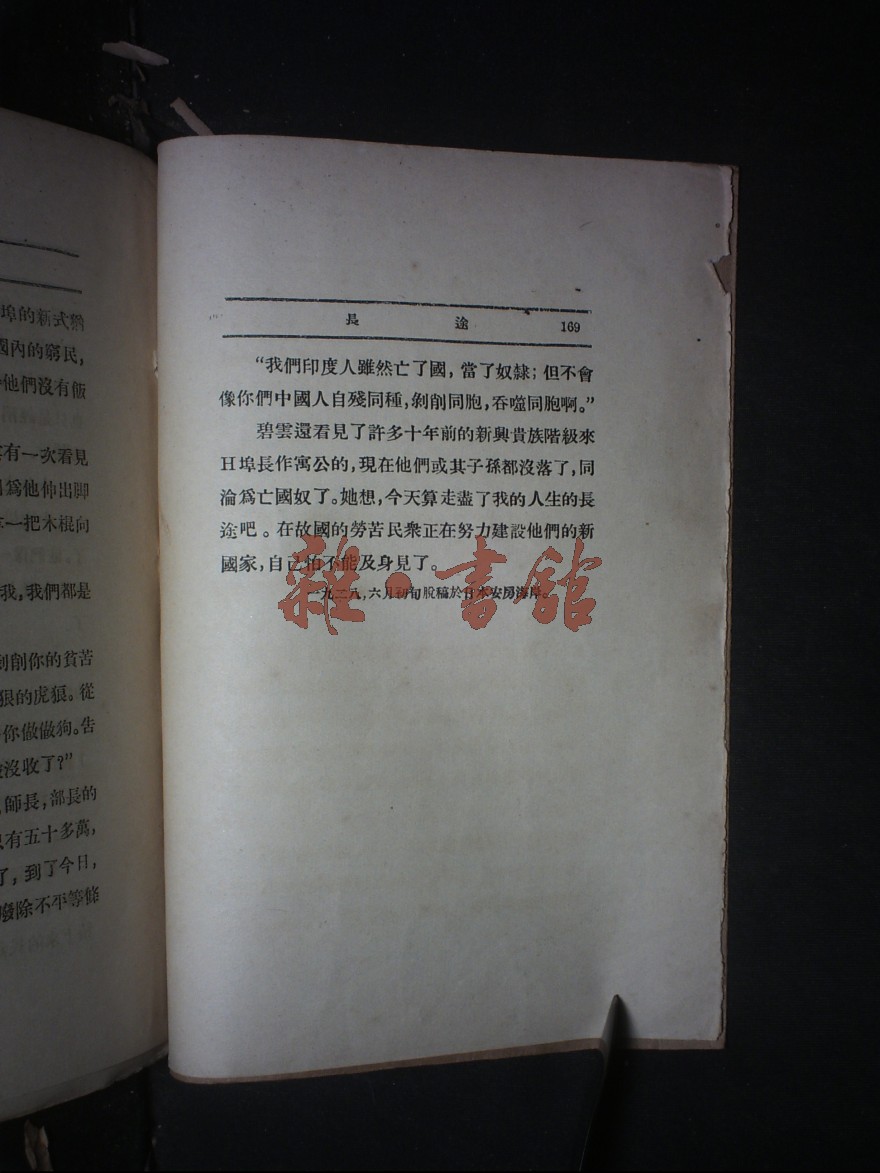 埠的新式
國內的窮民，
他們沒有飯
有一次看見
爲他伸出脚
一把木棍向
我，我們都是
削你的貧苦
狠的虎狼。從
你做做狗。告
沒收了？”
師長，部長的
只有五十多萬，
了，到了今日，
廢除不平等條
長途 169
“我們印度人雖然亡了國，當了奴隸；但不會
像你們中國人自殘同種，剝削同胞，吞噬同胞啊。”
碧雲還看見了許多十年前的新興貴族階級來
H埠長作寓公的，現在他們或其子孫都沒落了，同
淪爲亡國奴了。她想，今天算走盡了我的人生的長
途吧。在故國的勞苦民衆正在努力建設他們的新
國家，自己怕不能及身見了。
一九二九，六月初旬脫稿於日本安房海岸。
雜·書館